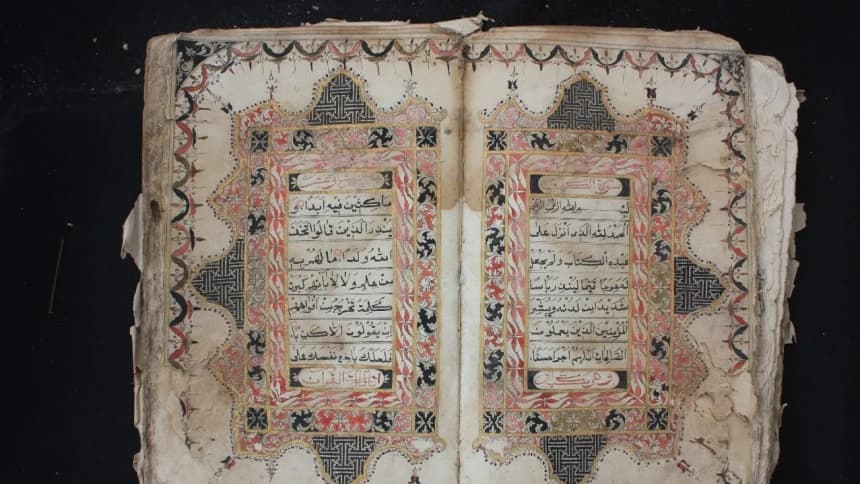 سورة الكهف
بسم الله الرحمن الرحيم
الحمد لله الذي انزل على
عبده الكتاب ولم يجعل
له عوجا قيما لينذر باسا
شديدا من لدنه ويبشر
المؤمنين الذين يعملون
الصالحات ان لهم اجرا حسنا
ماكثين فيه ابدا و
ينذر الذين قالوا اتخذ
الله ولدا ما لهم به
من علم ولا لابائهم كبرت
كلمة تخرج من افواههم
ان يقولون الا كذبا
فلعلك باخع نفسك على